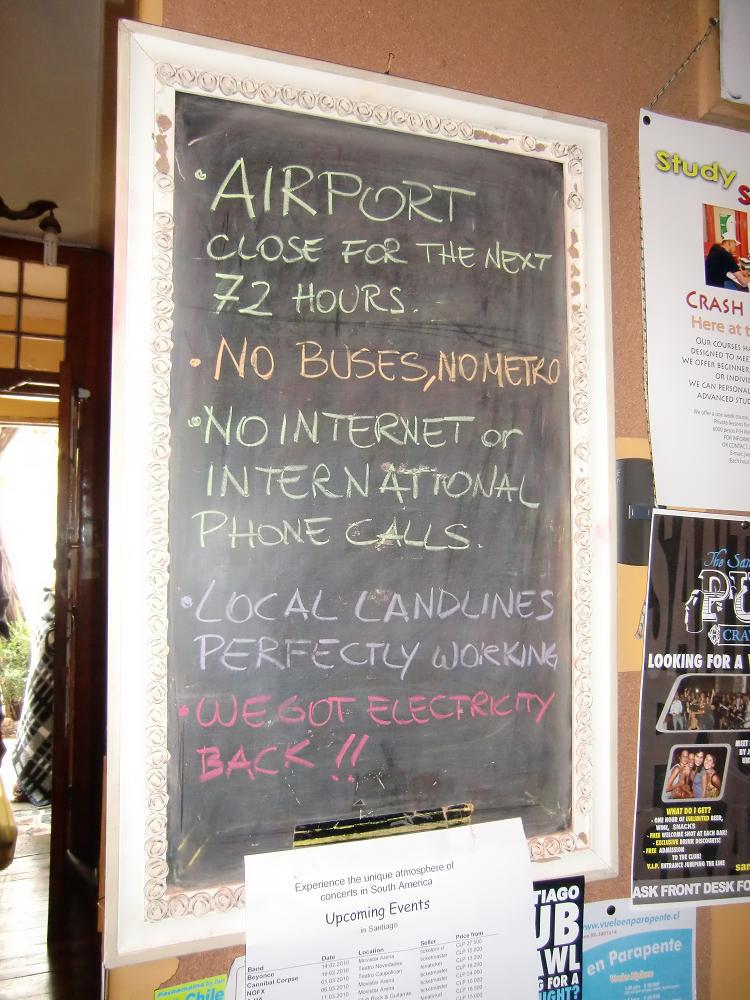 • AIRPORT
CLOSE FOR THE NEXT
72 HOURS.
• NO BUSES, NO METRO
• NO INTERNET or
INTERNATIONAL
PHONE CALLS.
• LOCAL LANDLINES
PERFECTLY WORKING
• WE GOT ELECTRICITY
BACK !!
Experience the unique atmosphere of
concerts in South America
Upcoming Events
in Santiago
Band Date Location Seller Price from
Beyonce 14.02.2010 Movistar Arena
Cannibal Corpse 19.02.2010 Teatro Novedades
NOFX 01.03.2010 Teatro Caupolican ticketmaster
05.03.2010 Movistar Arena ticketmaster
11.03.2010
Study
CRASH
Here at
OUR COURSES
DESIGNED TO
WE OFFER BEGINNER,
OR
WE CAN
ADVANCED
The
PU
CRA
LOOKING FOR A
MEET
WHAT DO I GET?
- ONE HOUR OF UNLIMITED BEER,
WINE, SNACKS
- FREE WELCOME SHOT AT EACH BAR!
- EXCLUSIVE DRINK DISCOUNTS!
- FREE ADMISSION
TO THE CLUB!
V.I.P. ENTRANCE JUMPING THE LINE
ASK FRONT DESK FO
TIAGO
UB
AWL
G FOR A
IGHT?
www.vueloenparapente.cl
en Parapente
Chile